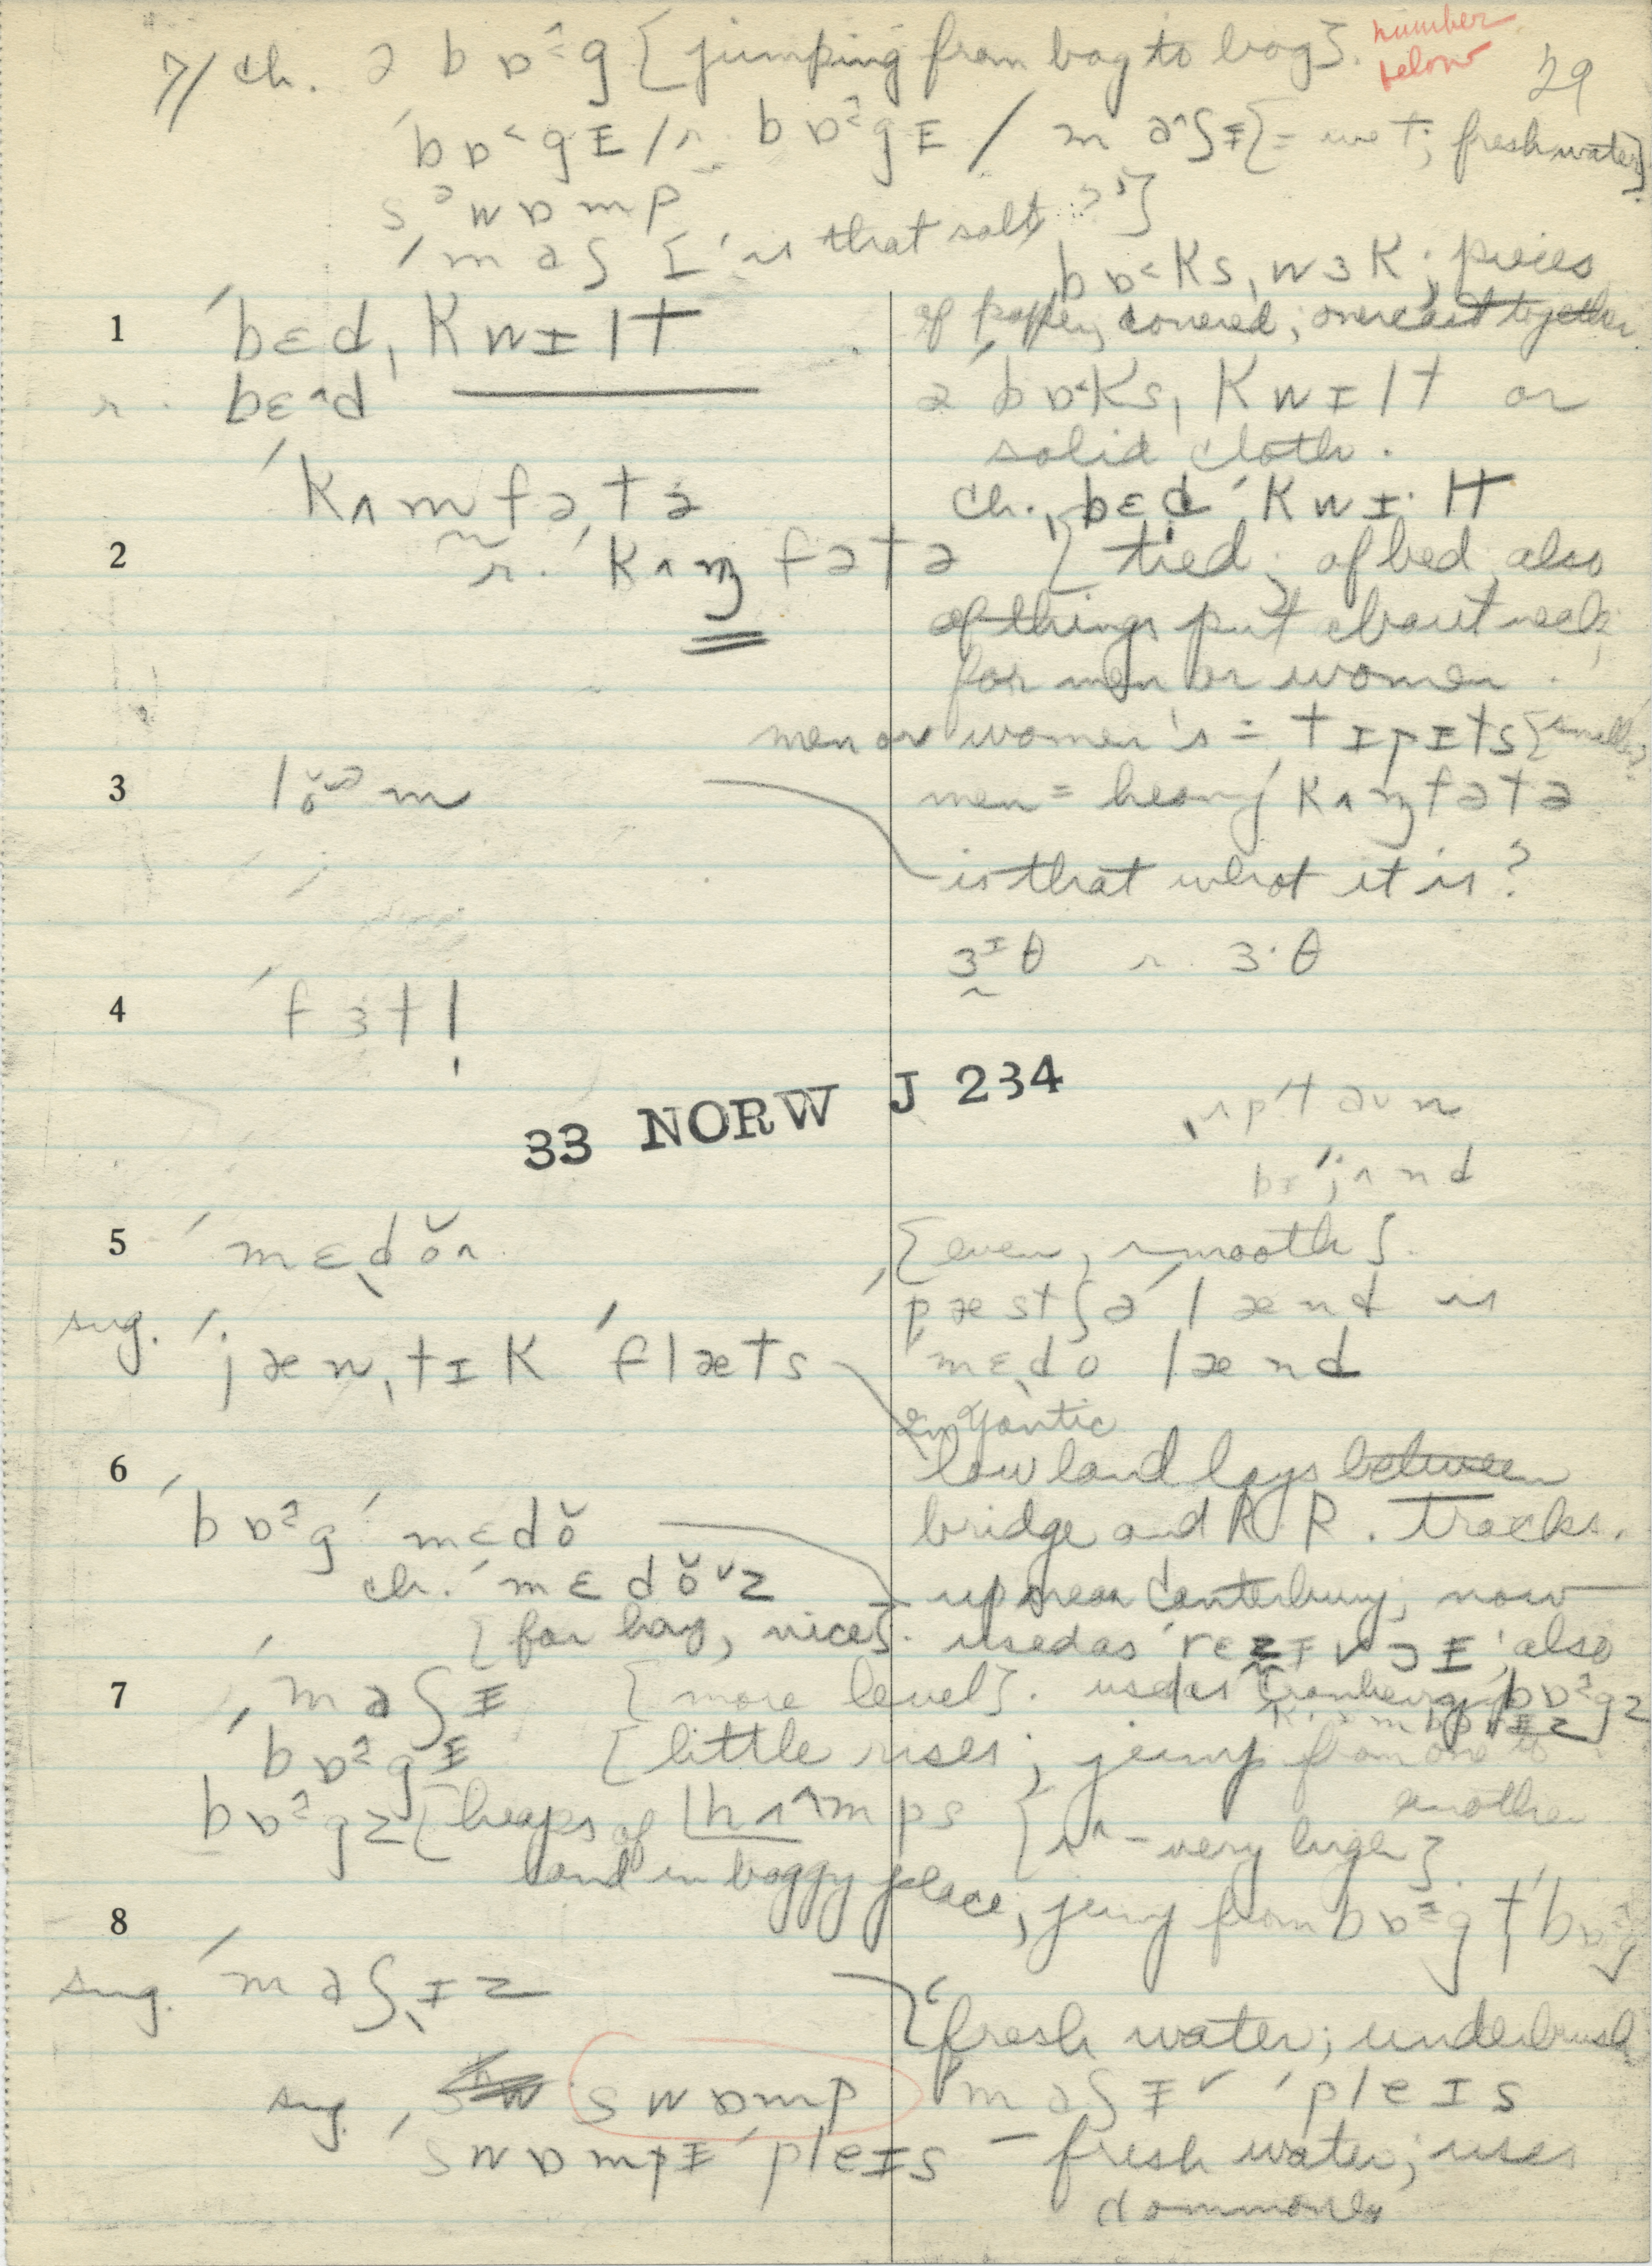 7/ ch. ə b ɒ^˔ g {jumping from bog to bog}. number below
29
ˈb ɒ˂ g ɪ / r. b ɒ˔ g ɪ / m a^ ʃ ɪ {= wet; freshwater}
s ᵊ w ɒ m p
ˈm a ʃ {'is that salt ?'}
b ɒ˂ k s ˌw ɜ k ; pieces
1 ˈb ɛ d ˌk w ɪ l t
of paper, covered; overcast together
r. b ɛ^ d
ə ˈb ɒ˂ k s ˌk w ɪ l t or
solid cloth.
ˈk ʌ m f ə ˌt ə
ch. ˌb ɛ d ˈk w ɪ · l t
2 r. ˈk ʌ ɱ f ə t ə
{tied; of bed, also
of things put about neck
for men or women.
men or women's = t ɪ p ɪ t s {smaller}
3 l ŏ ᵊ m
men = heavy k ʌ ɱ f ə t ə
is that what it is?
ɜ ᶦ θ r. ɜ · θ
4 ˈf ɜ t l̩
33 NORW J 234
ˌʌ p ˈt a ʊ n
b ɪ ˈj ʌ n d
5 ˈm ɛ ˌd ŏ ^
{even, smooth}.
sug. ˈj æ n ˌt ɪ k ˈf l æ t s
ˈp æ s t ʃ ə ˈl æ n d is
ˈm ɛ ˌd o l æ n d
in Yantic
6 ˈb ɒ˔ g ˈm ɛ d ŏ
low land lays between
bridge and R.R. tracks.
ch. ˈm ɛ d ŏ ᵛ z
up near Canterbury; now
{for hay, nice}.
used as ˈr ɛ z ɪ v ɔ ɪ; also
7 ˈm a ʃ ɪ {more level}.
used as cranberry b ɒ˔ g z
ˈb ɒ˔ g ɪ {little rises; jump from one to
another
b ɒ˔ g z {heaps of ˈh ʌ^ m p s {ʌ^ - very high}.
land in boggy place; jump from b ɒ˔ g t ˈb ɒ˔ g
8
sug. ˈm a ʃ ˌɪ z
{'fresh water; underbrush
sug. ˈs w ɒ m p
ˈm a ʃ ɪ ˅ ˈp l e ɪ s
ˈs w ɒ m p ɪ ˈp l e ɪ s – fresh water; uses
commonly